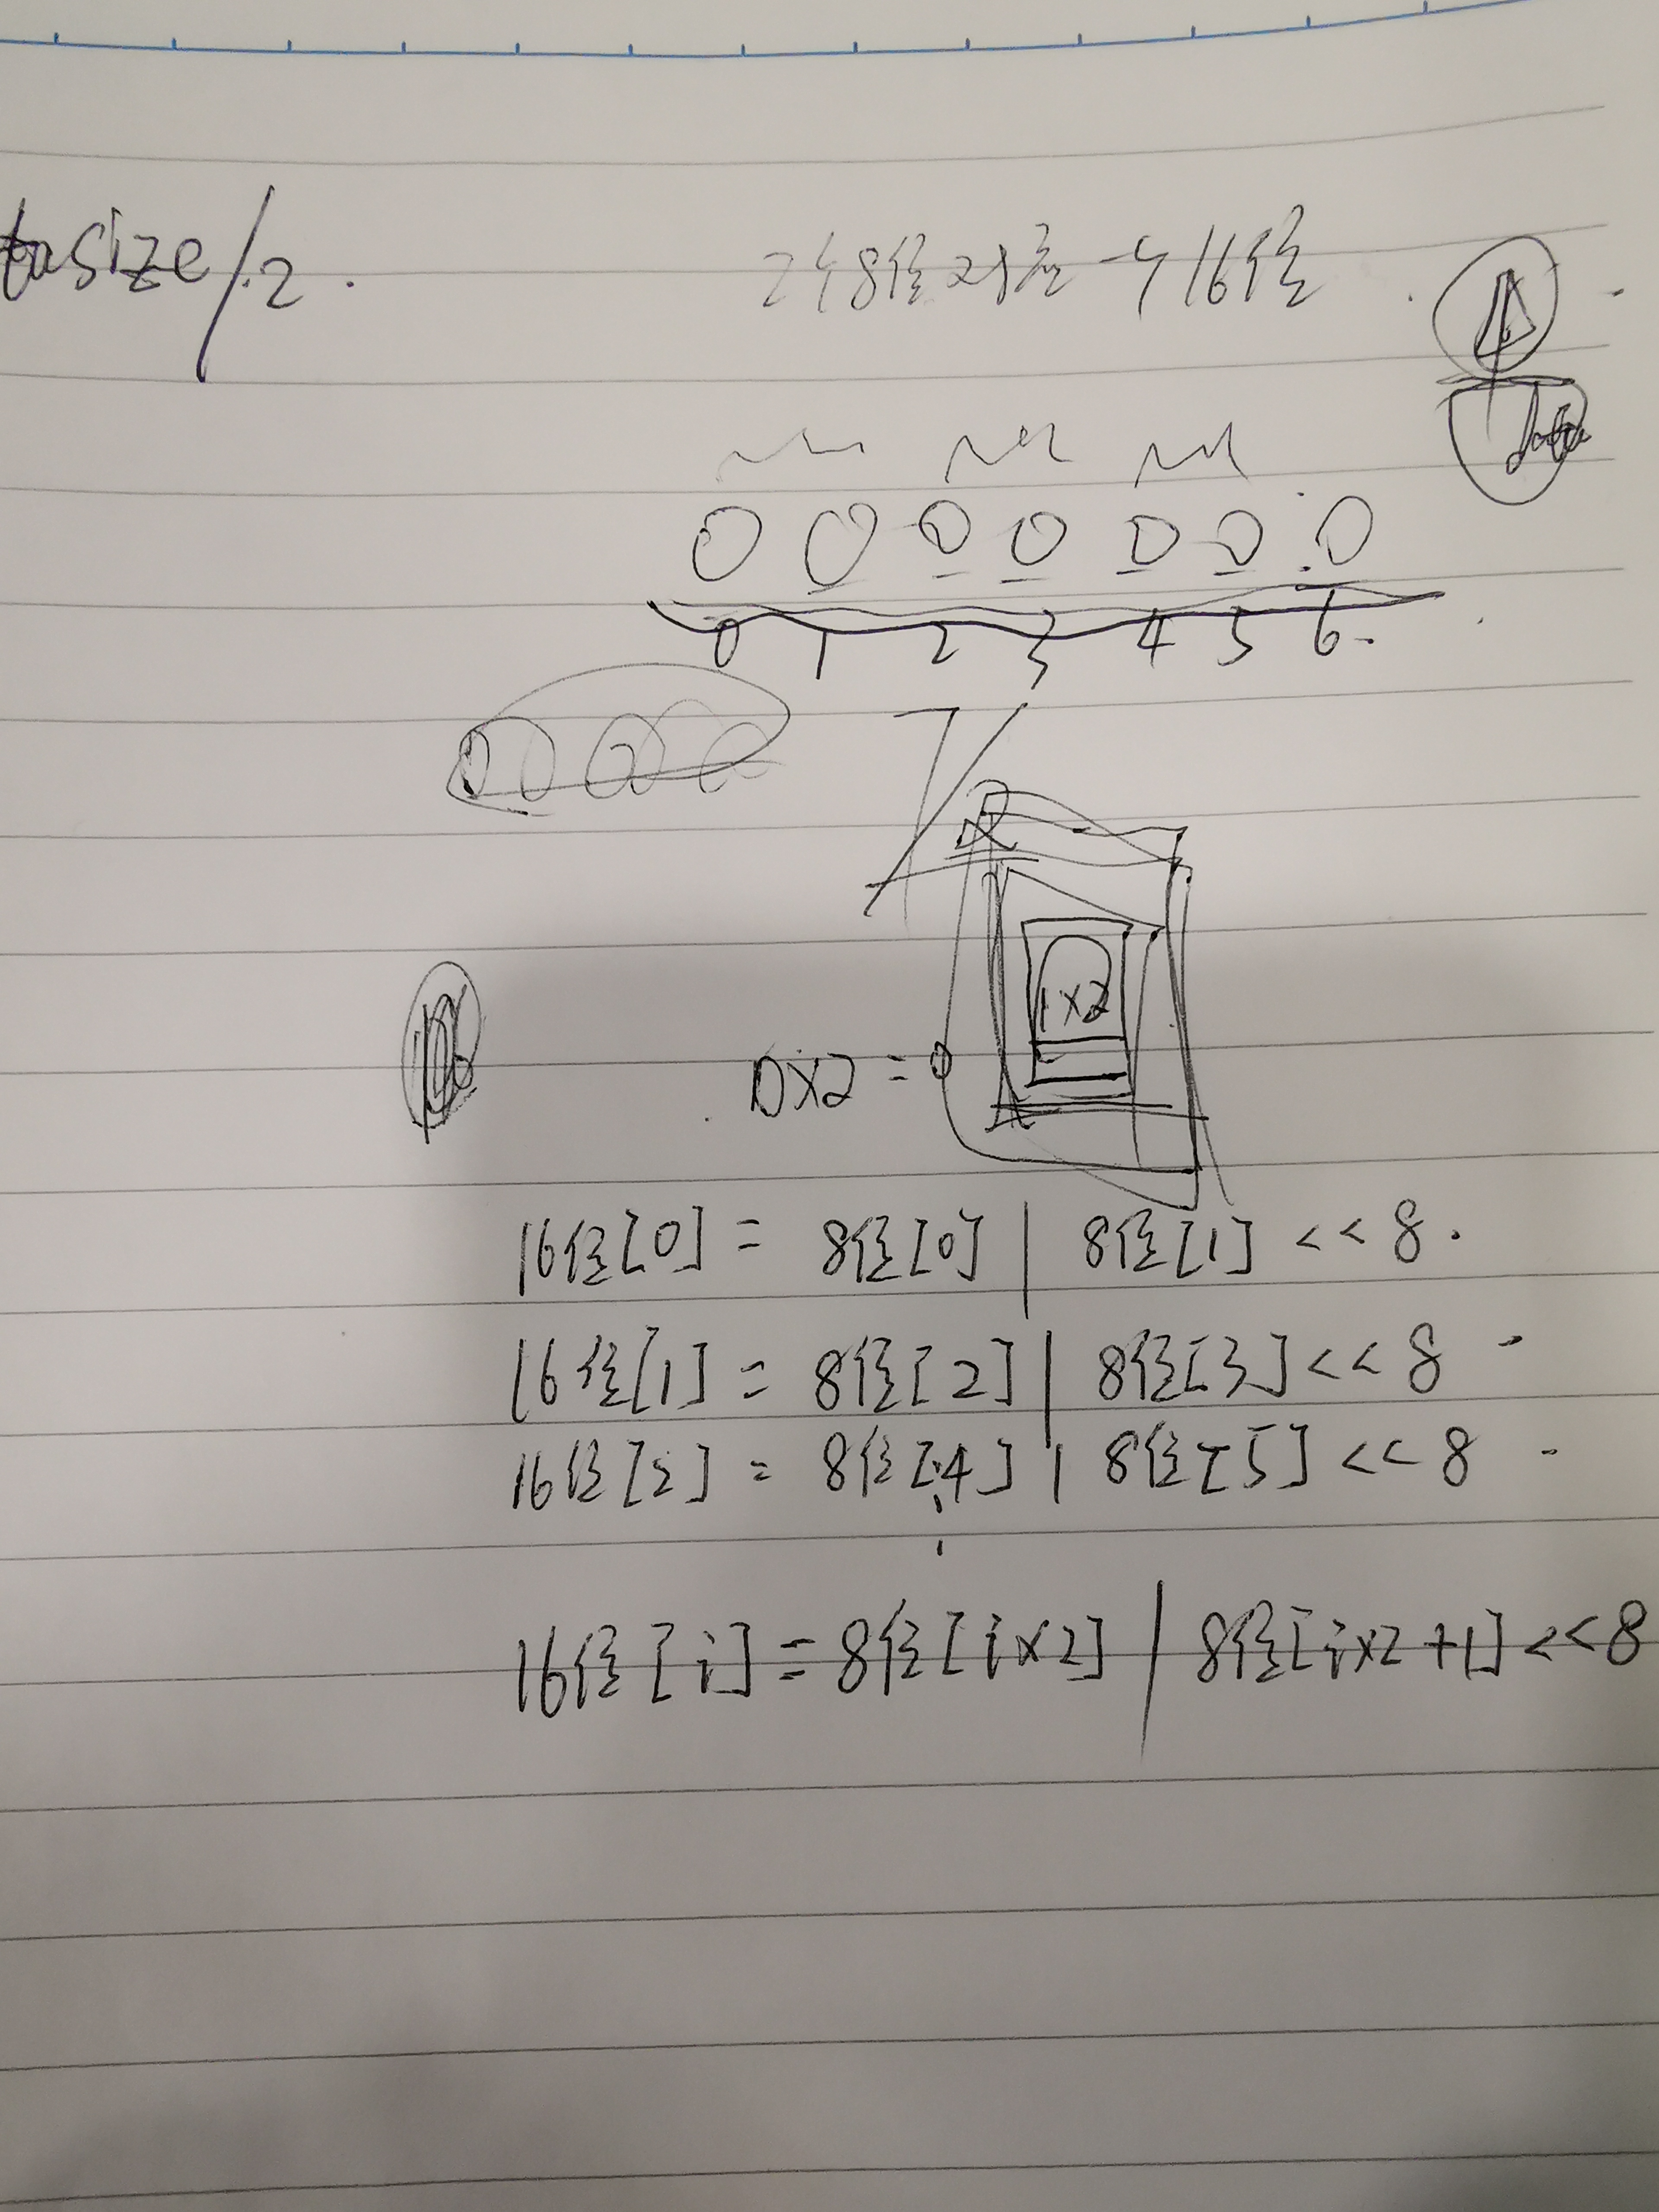 tasize/2.
2个8位对应一个16位
data
0 0 0 0 0 0 0
0 1 2 3 4 5 6
7/2
1x2
0x2=0
16位[0] = 8位[0] | 8位[1] << 8.
16位[1] = 8位[2] | 8位[3] << 8
16位[2] = 8位[4] | 8位[5] << 8
16位[i] = 8位[ix2] | 8位[ix2+1] << 8